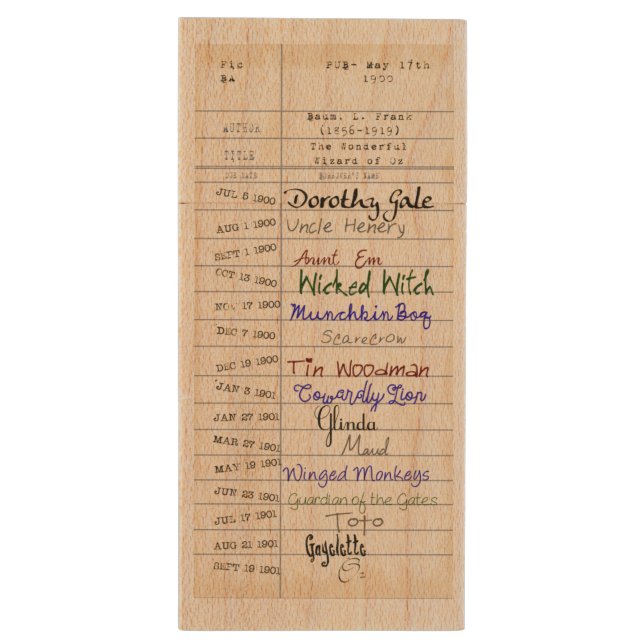 Fic PUB- May 17th
BA 1900
AUTHOR Baum, L. Frank
(1856-1919)
TITLE The Wonderful
Wizard of Oz
DUE DATE BORROWER'S NAME
JUL 5 1900 Dorothy Gale
AUG 1 1900 Uncle Henery
SEPT 1 1900 Aunt Em
OCT 13 1900 Wicked Witch
NOV 17 1900 Munchkin Boq
DEC 7 1900 Scarecrow
DEC 19 1900 Tin Woodman
JAN 3 1901 Cowardly Lion
JAN 27 1901 Glinda
MAR 27 1901 Maud
MAY 19 1901 Winged Monkeys
JUN 23 1901 Guardian of the Gates
JUL 17 1901 Toto
AUG 21 1901 Gayelette
SEPT 19 1901 Oz